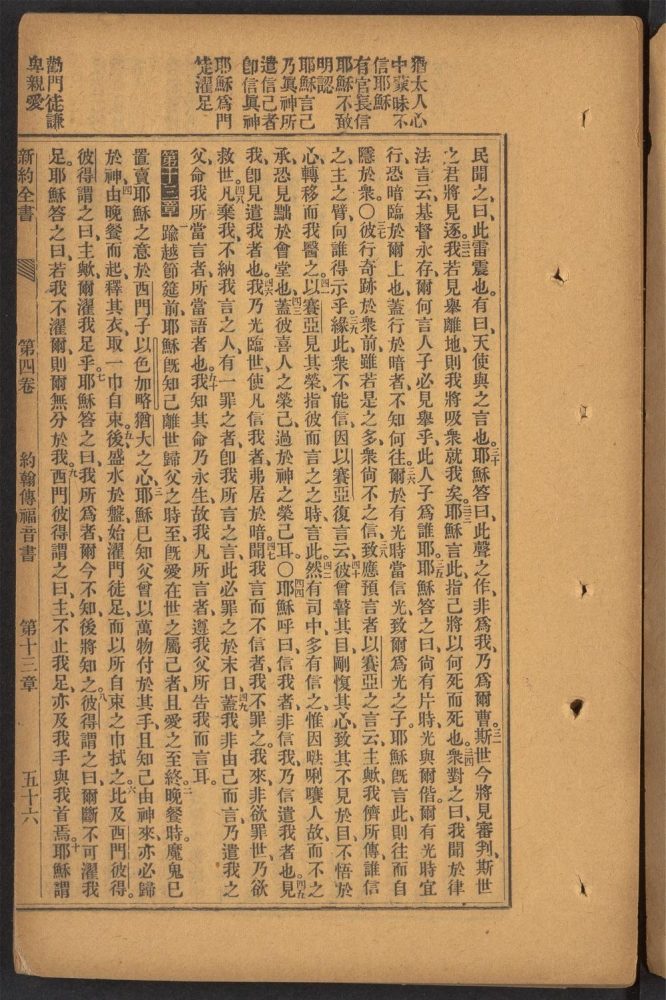 猶太人心
中蒙昧不
信耶穌
有官長信
耶穌不敢
明認
耶穌言己
乃眞神所
遣信己者
卽信眞神
耶穌爲門
徒濯足
勸門徒謙
卑親愛
民聞之曰、此雷震也。有曰、天使與之言也。三十耶穌答曰、此聲之作、非爲我、乃爲爾曹。三一斯世今將見審判、斯世
之君將見逐。三二我若見舉離地、則我將吸衆就我矣。三三耶穌言此、指己將以何死而死也。三四衆對之曰、我聞於律
法言云、基督永存、爾何言人子必見舉乎、此人子爲誰耶。三五耶穌答之曰、尙有片時、光與爾偕、爾有光時宜
行、恐暗臨於爾上也、蓋行於暗者、不知何往。三六爾於有光時、當信光、致爾爲光之子。耶穌旣言此、則往而自
隱於衆。〇三七彼行奇跡於衆前、雖若是之多、衆尙不之信、三八致應預言者以賽亞之言云、主歟、我儕所傳誰信
之、主之臂向誰得示乎。三九緣此衆不能信、因以賽亞復言云、四十彼曾瞽其目、剛愎其心、致其不見於目、不悟於
心、轉移而我醫之。四一以賽亞見其榮、指彼而言之之時言此。四二然有司中、多有信之、惟因㗭唎㘔人故、而不之
承、恐見黜於會堂也。四三蓋彼喜人之榮己、過於神之榮己耳。〇四四耶穌呼曰、信我者、非信我、乃信遣我者也。四五見
我、卽見遣我者也。四六我乃光臨世、使凡信我者、弗居於暗。四七聞我言而不信者、我不罪之。我來、非欲罪世、乃欲
救世。四八凡棄我、不納我言之人、有一罪之者、卽我所言之言、此必罪之於末日。四九蓋我非由己而言、乃遣我之
父命我所當言者、所當語者也。五十我知其命乃永生、故我凡所言者、遵我父所告我而言耳。
第十三章 一踰越節筵前、耶穌旣知己離世歸父之時至、旣愛在世之屬己者、且愛之至終。二晚餐時、魔鬼已
置賣耶穌之意、於西門子以色加略猶大之心、三耶穌已知父曾以萬物付於其手、且知己由神來、亦必歸
於神、四由晚餐而起、釋其衣、取一巾自束。五後盛水於盤、始濯門徒足、而以所自束之巾拭之。六比及西門彼得。
彼得謂之曰、主歟、爾濯我足乎。七耶穌答之曰、我所爲者、爾今不知、後將知之。八彼得謂之曰、爾斷不可濯我
足。耶穌答之曰、若我不濯爾、則爾無分於我。九西門彼得謂之曰、主、不止我足、亦及我手與我首焉。十耶穌謂
新約全書 第四卷 約翰傳福音書 第十三章 五十六